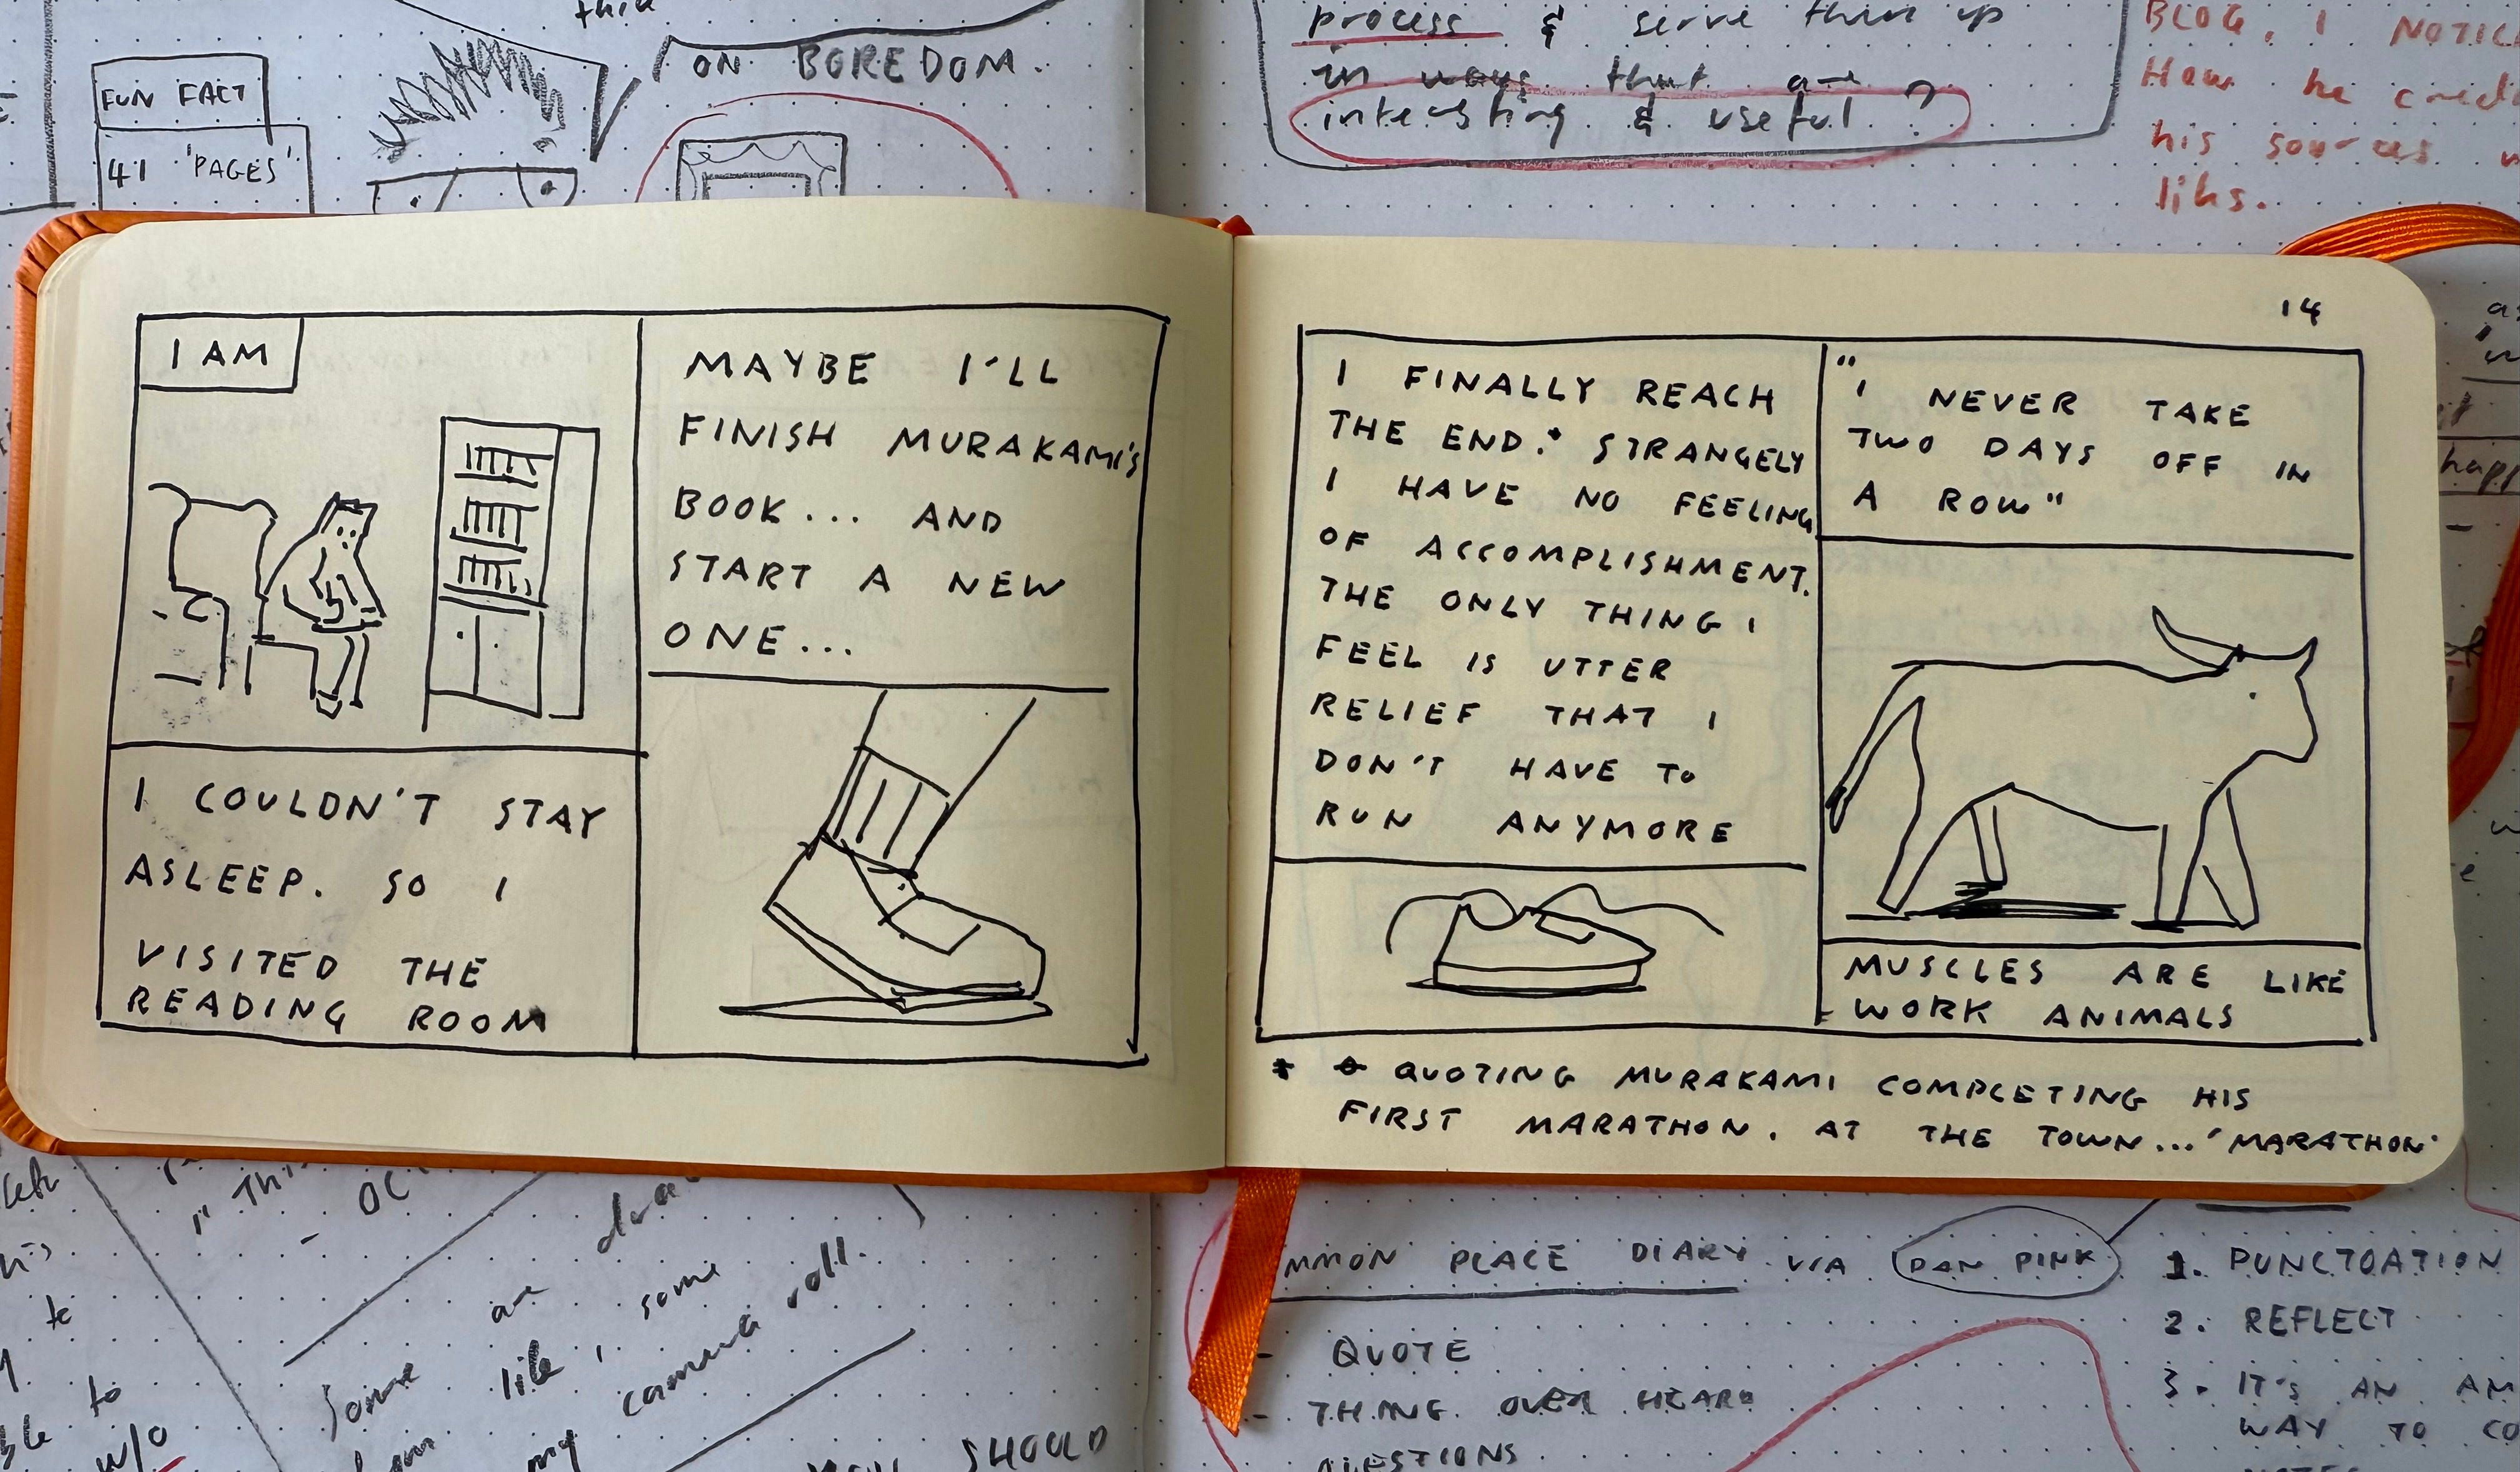 this
ON BOREDOM.
FUN FACT
41 'PAGES'
process & serve them up
in ways that are
interesting & useful ?
BLOG, I
How he
his sources
14
I AM
I COULDN'T STAY
ASLEEP. SO I
VISITED THE
READING ROOM
MAYBE I'LL
FINISH MURAKAMI'S
BOOK... AND
START A NEW
ONE...
I FINALLY REACH
THE END.* STRANGELY
I HAVE NO FEELING
OF ACCOMPLISHMENT.
THE ONLY THING I
FEEL IS UTTER
RELIEF THAT I
DON'T HAVE TO
RUN ANYMORE
"I NEVER TAKE
TWO DAYS OFF IN
A ROW"
MUSCLES ARE LIKE
WORK ANIMALS
* QUOTING MURAKAMI COMPLETING HIS
FIRST MARATHON. AT THE TOWN... 'MARATHON'
some
are
like, some
my camera roll.
SHOULD
PLACE DIARY VIA DAN PINK
- QUOTE
- THING OVER HEARD
1. PUNCTUATION
2. REFLECT
3. IT'S AN
WAY TO
to
w/o